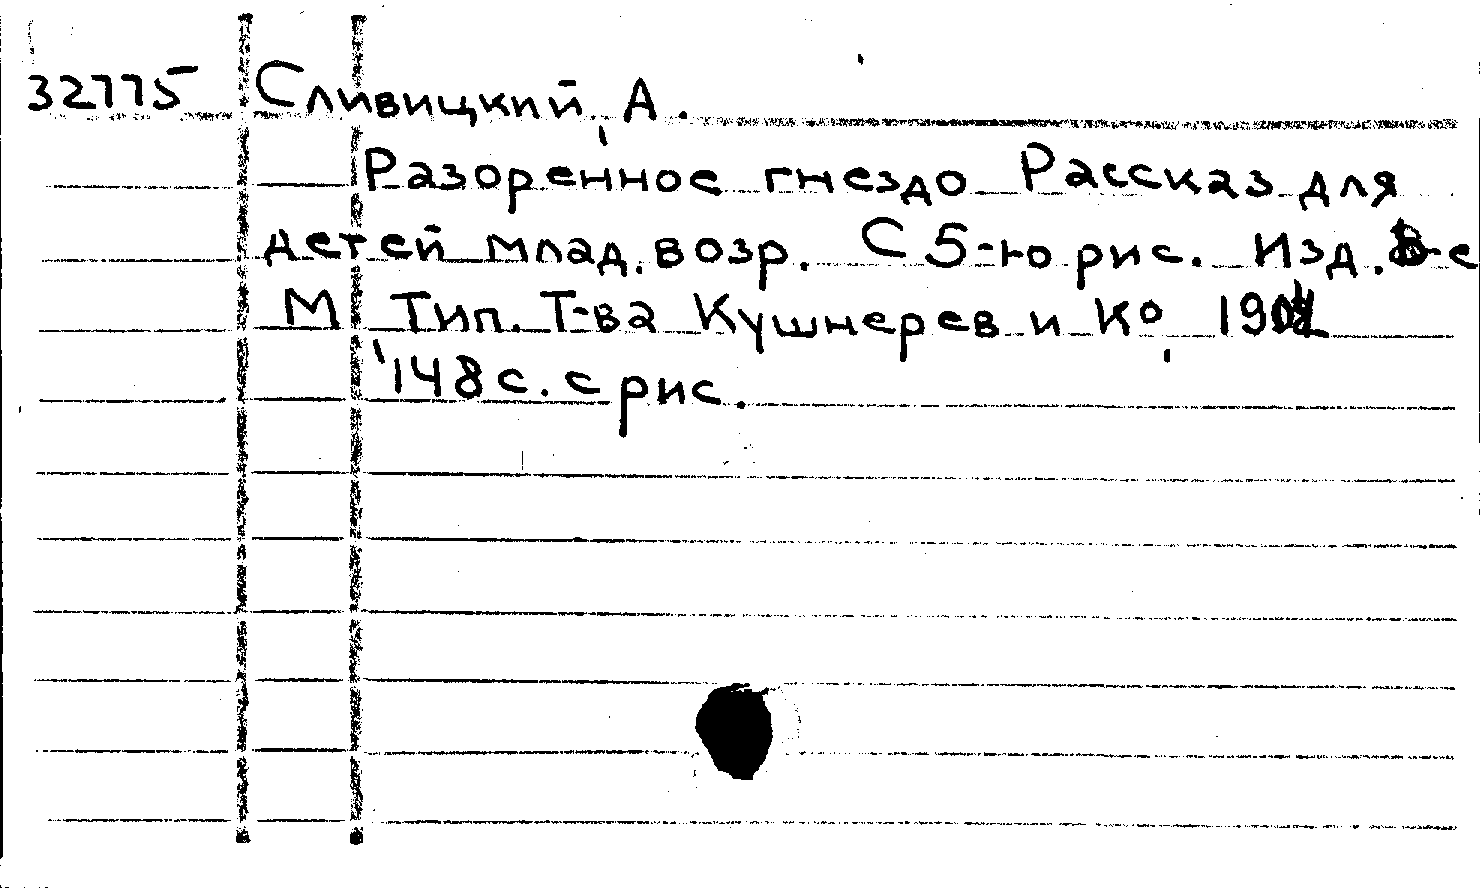 32775 Сливицкий, А.
Разоренное гнездо Рассказ для
детей млад. возр. С 5-ю рис. Изд.
М Тип. Т-ва Кушнерев и Ко,
148 с. с рис.